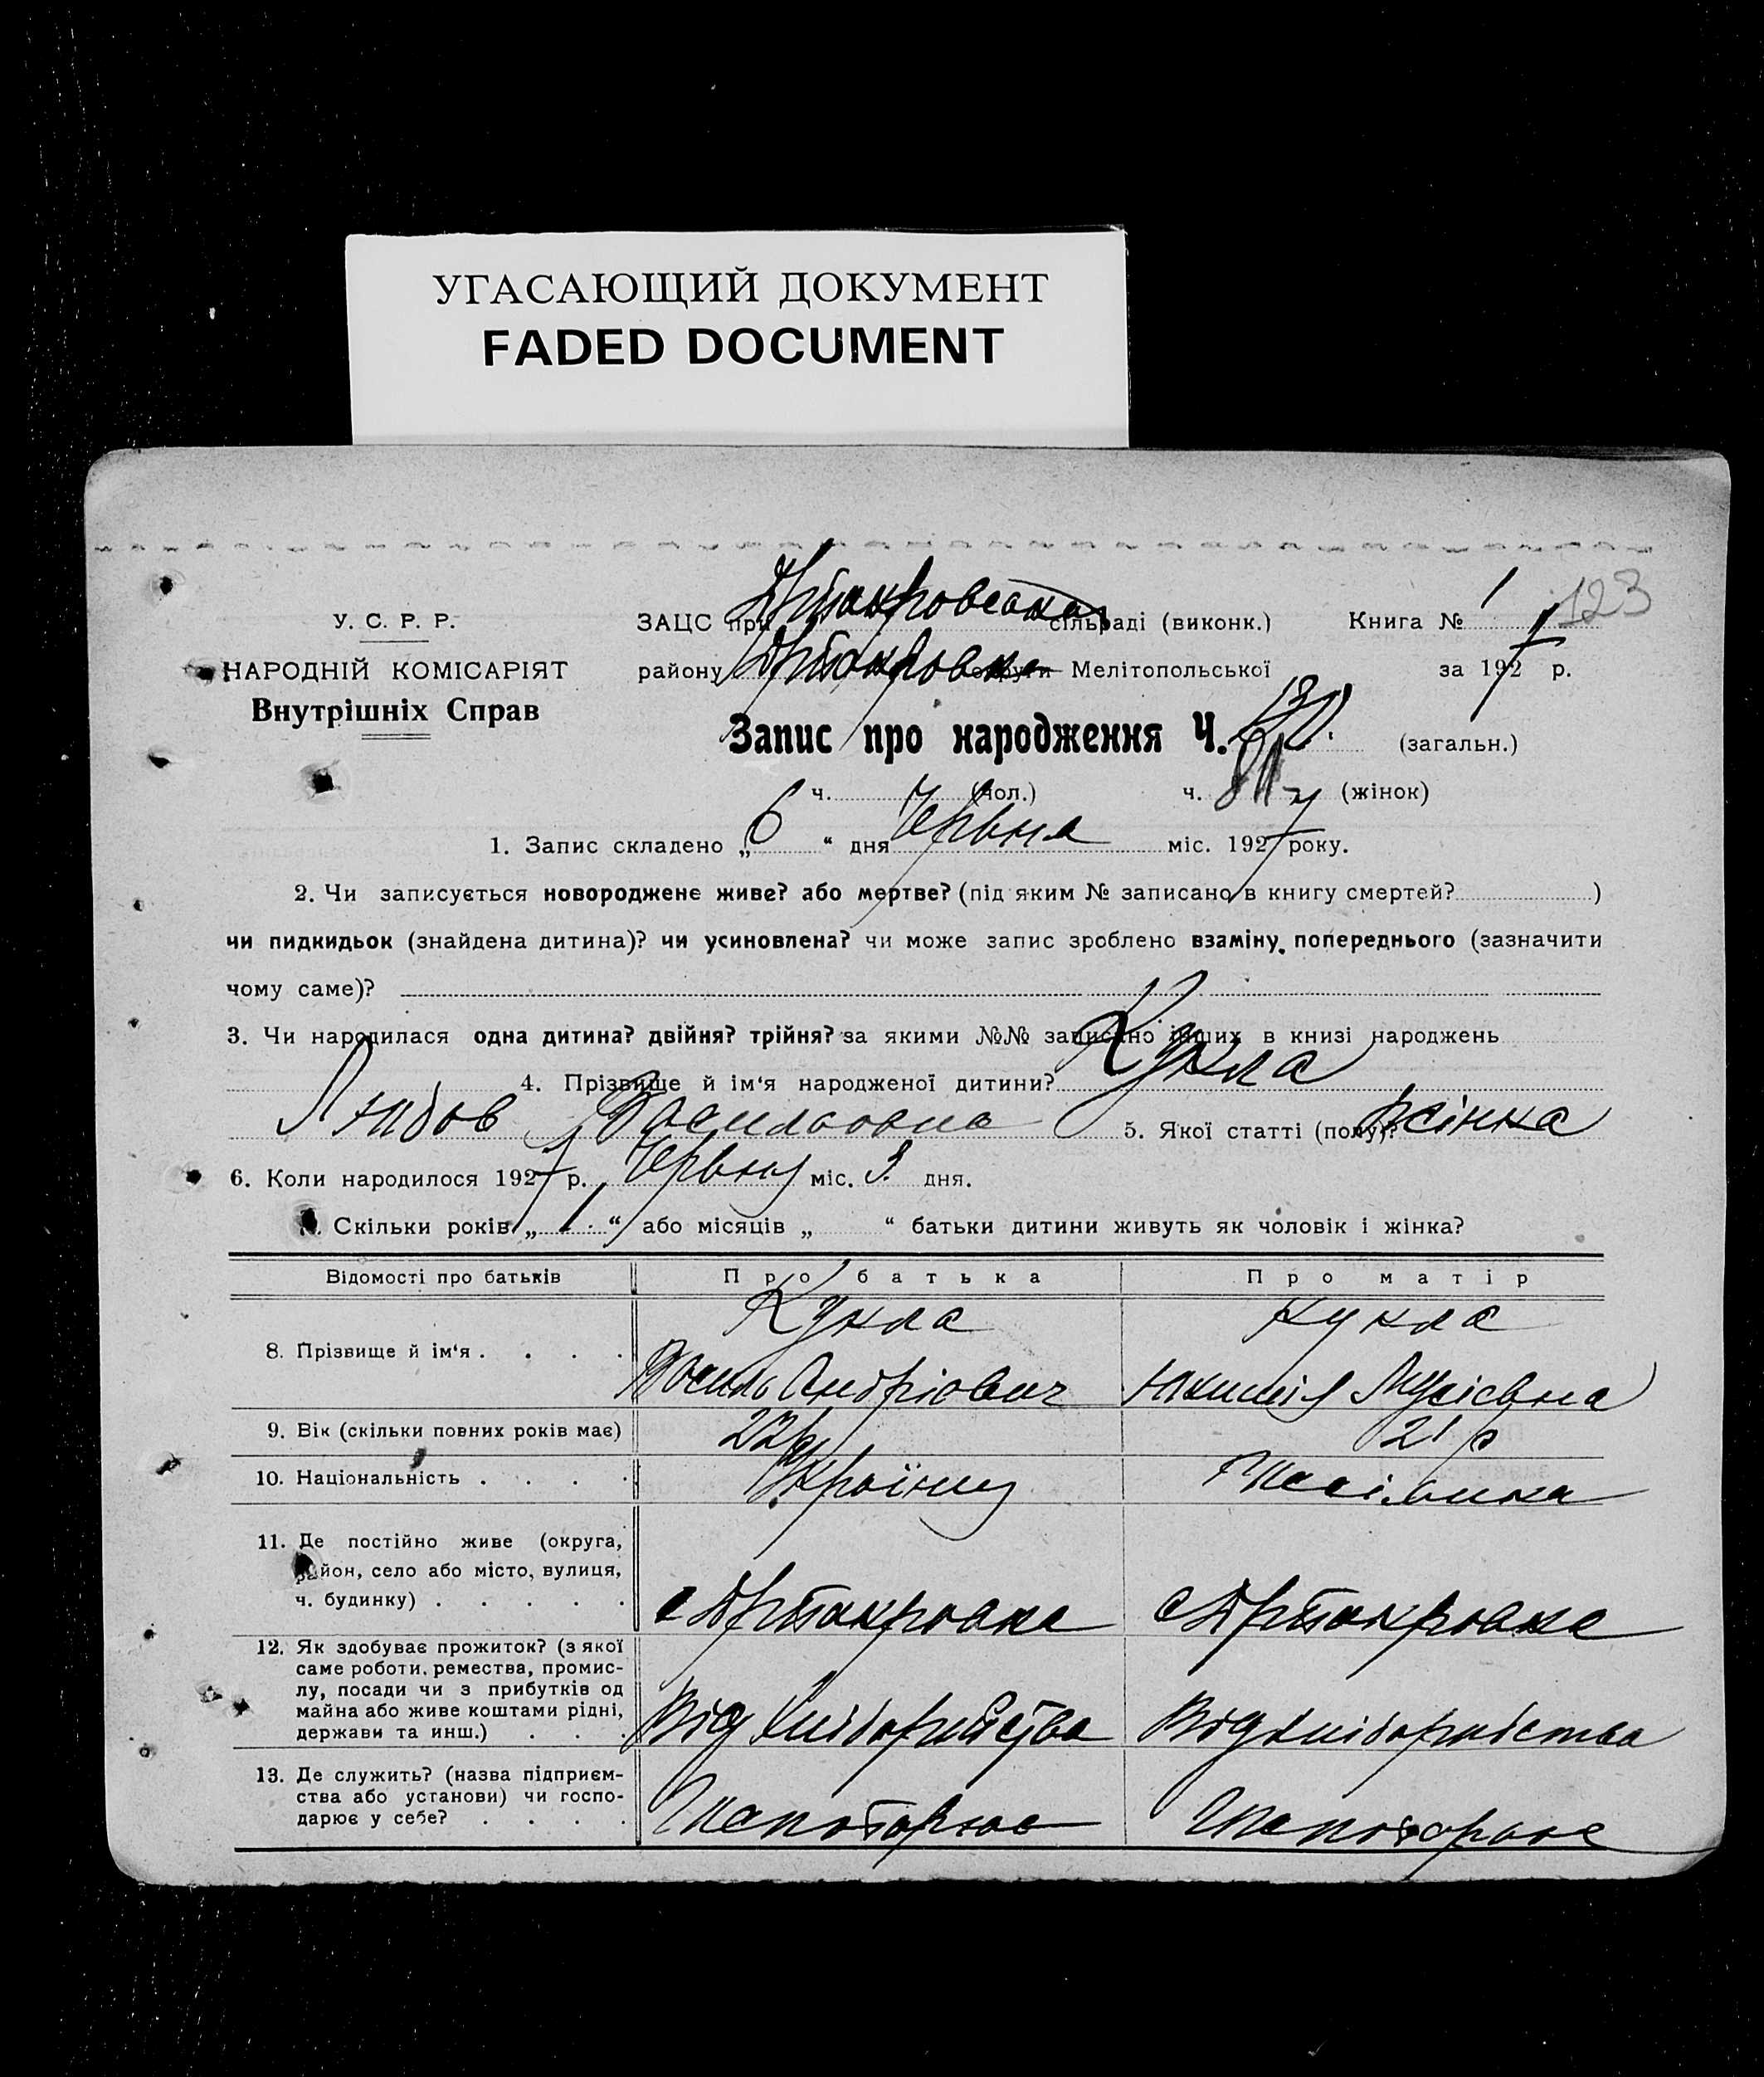 УГАСАЮЩИЙ ДОКУМЕНТ
FADED DOCUMENT
123
У. С. Р. Р.
НАРОДНІЙ КОМІСАРІЯТ
Внутрішніх Справ
ЗАЦС при сільраді (виконк.) Книга № 1
району округи Мелітопольської за 1927 р.
Запис про народження Ч. 130. (загальн.)
ч. (чол.) ч. (жінок)
1. Запис складено „ 6 “ дня Червня міс. 1927 року.
2. Чи записується новороджене живе? або мертве? (під яким № записано в книгу смертей? )
чи пидкидьок (знайдена дитина)? чи усиновлена? чи може запис зроблено взаміну попереднього (зазначити
чому саме)?
3. Чи народилася одна дитина? двійня? трійня? за якими №№ записано інших в книзі народжень
4. Прізвище й ім‘я народженої дитини? Кукла
Любов Васильовна 5. Якої статті (полу)? жінка
6. Коли народилося 1927 р. Червня міс. 3. дня.
Скільки років „ 1 “ або місяців „ “ батьки дитини живуть як чоловік і жінка?
Відомості про батьків Про батька Про матір
8. Прізвище й ім‘я . . . . Кукла Кукла
Василь Андріович Мусієвна
9. Вік (скільки повних років має) 22 р 21 р
10. Національність . . . . Українец
11. Де постійно живе (округа,
район, село або місто, вулиця,
ч. будинку) . . . . .
12. Як здобуває прожиток? (з якої
саме роботи, ремества, промис-
лу, посади чи з прибутків од
майна або живе коштами рідні,
держави та инш.) . . . Від хліборобства Від хліборобства
13. Де служить? (назва підприєм-
ства або установи) чи госпо-
дарює у себе? . . . .